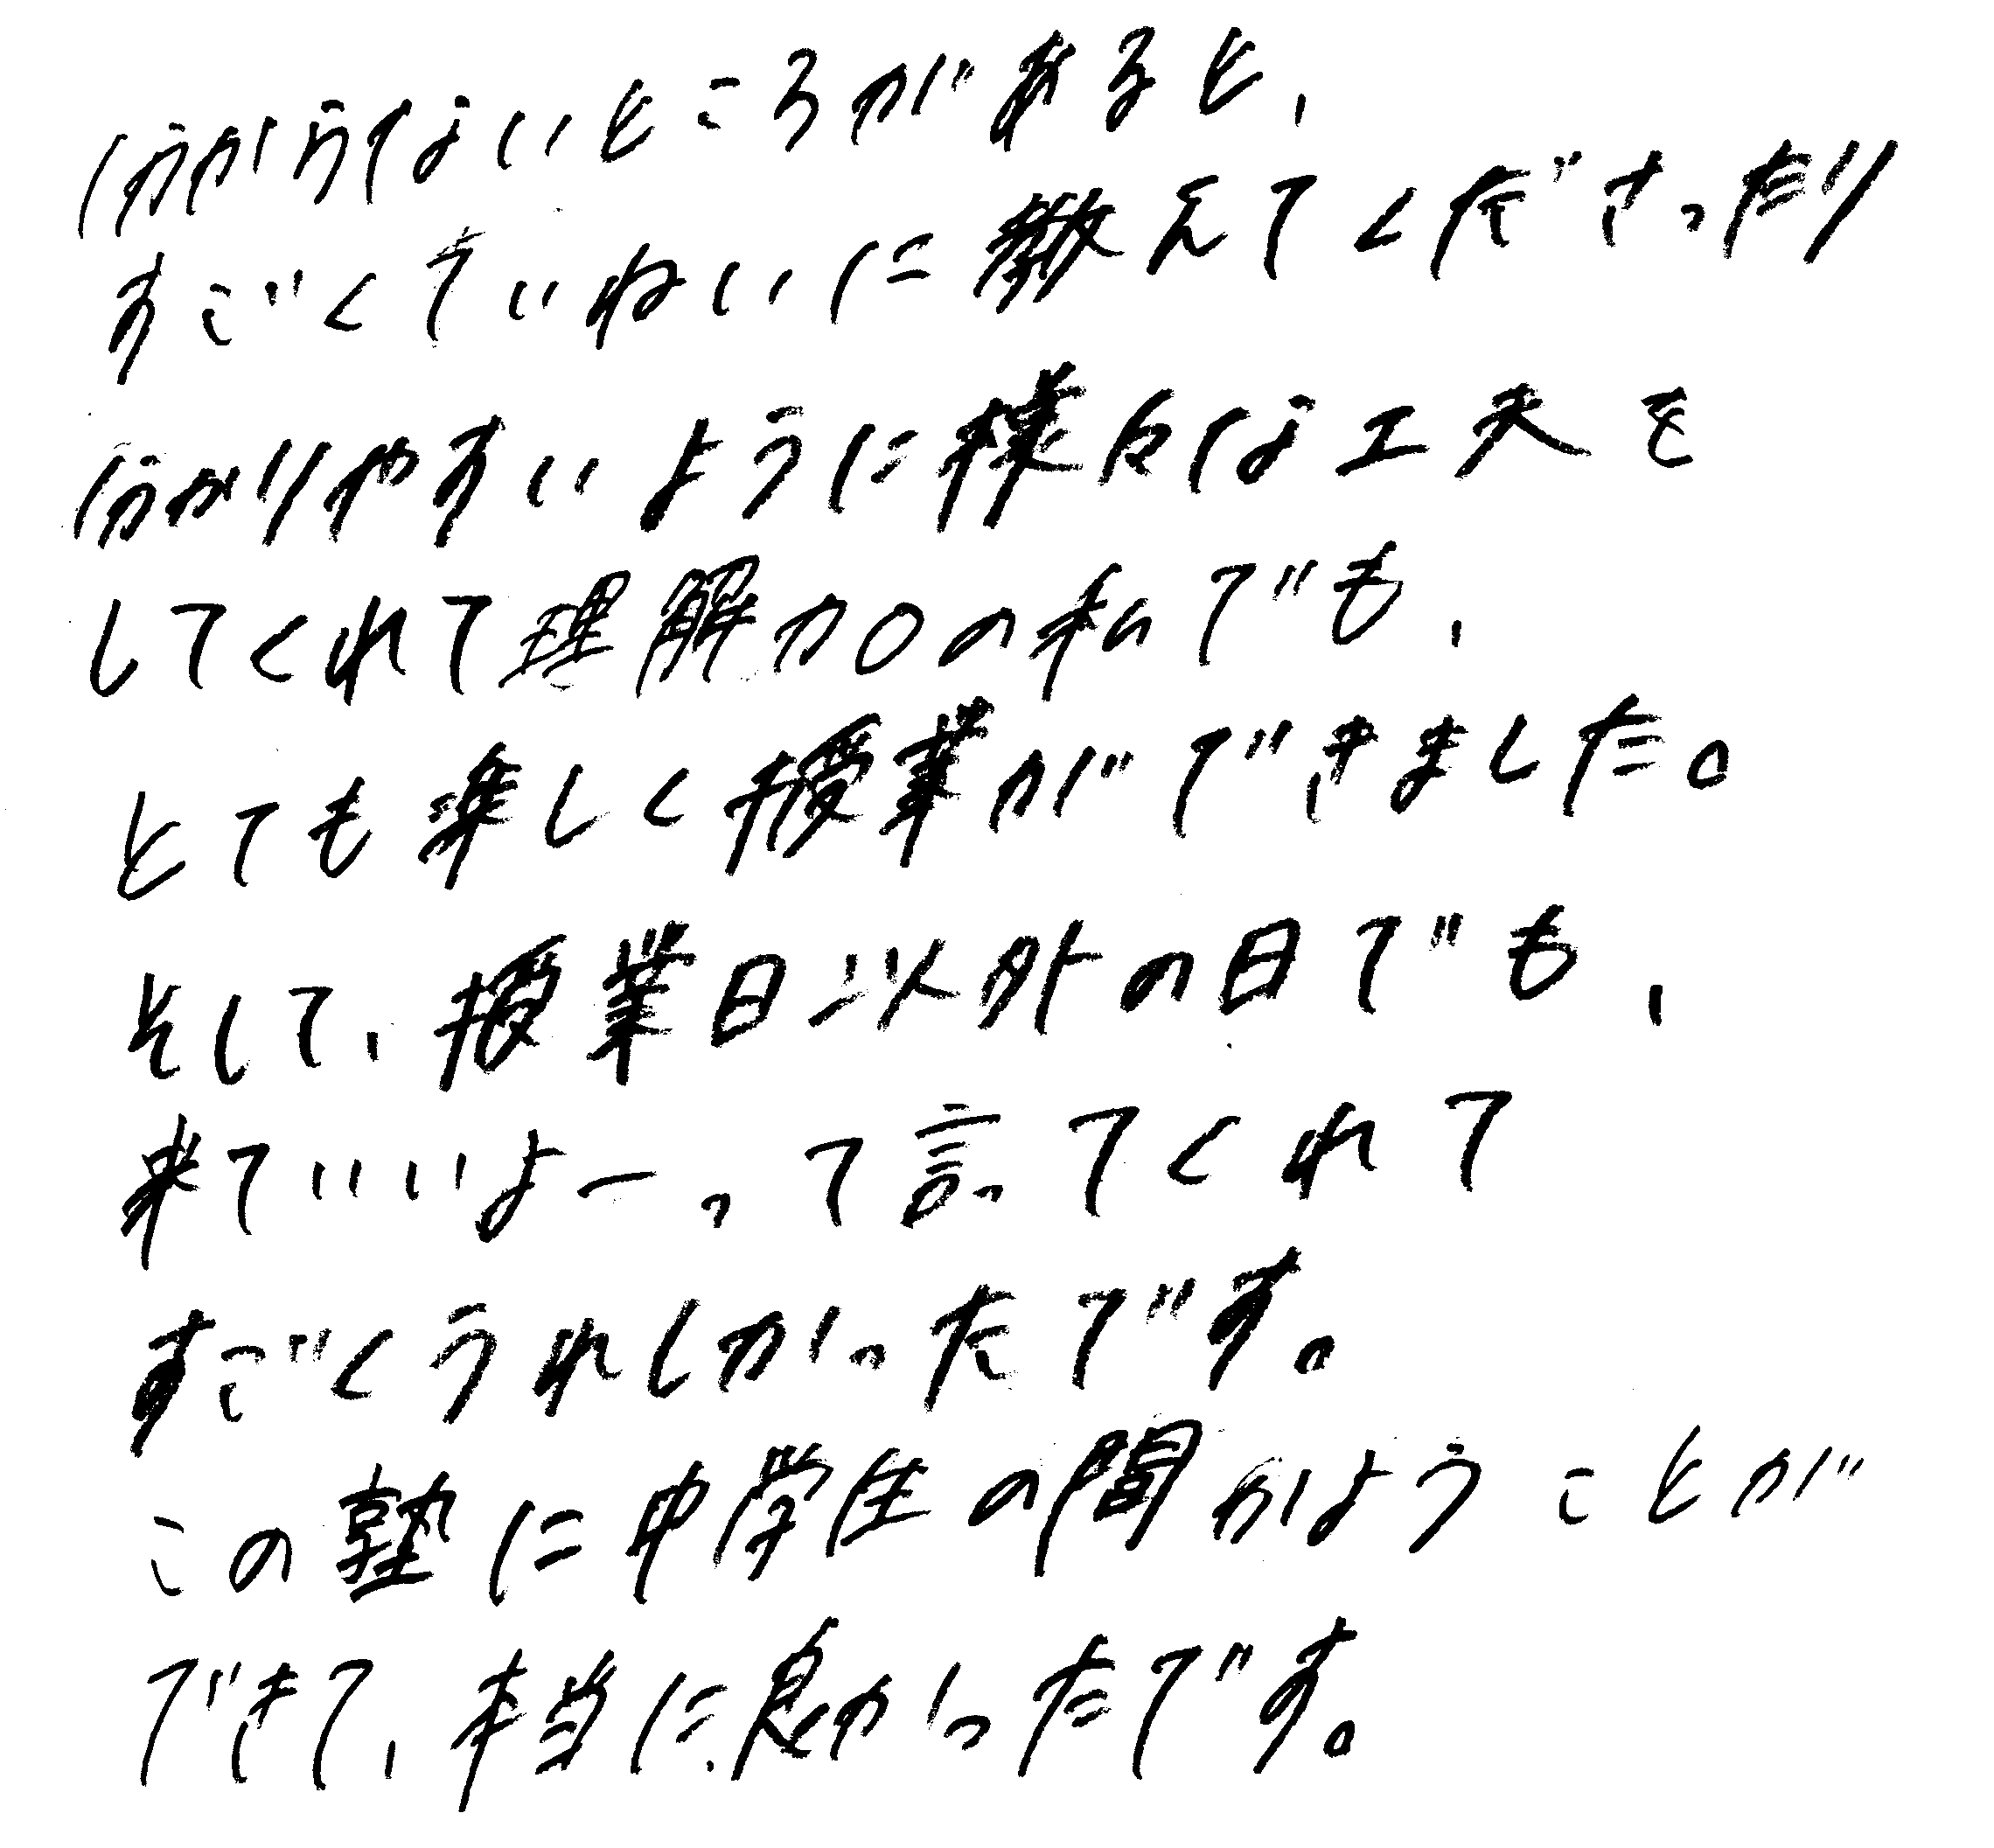 分からないところがあると、
すごくていねいに教えてくださったり
分かりやすいように様々な工夫を
してくれて理解力0の私でも、
とても楽しく授業ができました。
そして、授業日以外の日でも、
来ていいよーって言ってくれて
すごくうれしかったです。
この塾に中学生の間かようことが
できて、本当に良かったです。